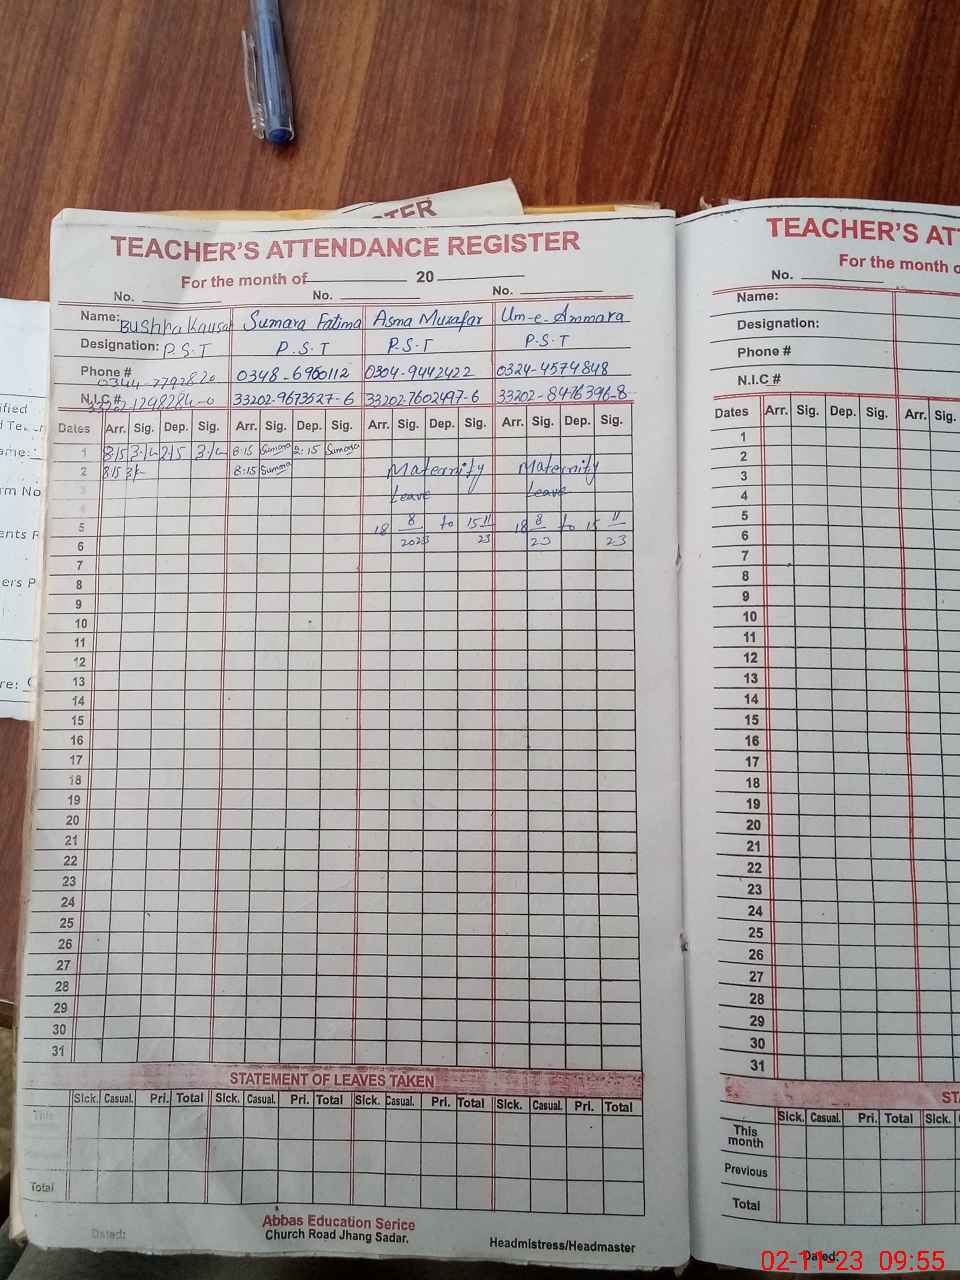 TER
TEACHER'S ATTENDANCE REGISTER
For the month of 20
No. No. No.
Name: Bushra Kausar Sumara Fatima Asma Muzafar Um-e-Ammara
Designation: P.S.T P.S.T P.S.T P.S.T
Phone # 0348-6960112 0304-9442422 0324-4574848
N.I.C# 33202-9673527-6 33202-7602497-6 33202-8476396-8
Dates Arr. Sig. Dep. Sig. Arr. Sig. Dep. Sig. Arr. Sig. Dep. Sig. Arr. Sig. Dep. Sig.
1 8:15 2:15 8:15 Sumara 2:15 Sumara
2 8:15 8:15 Sumara Maternity Maternity
3 Leave Leave
4
5 18 8/2023 to 15 11/23 18 8/23 to 15 11/23
6
7
8
9
10
11
12
13
14
15
16
17
18
19
20
21
22
23
24
25
26
27
28
29
30
31
STATEMENT OF LEAVES TAKEN
Sick. Casual. Pri. Total Sick. Casual. Pri. Total Sick. Casual. Pri. Total Sick. Casual. Pri. Total
This
Total
Abbas Education Serice
Church Road Jhang Sadar.
Dated: Headmistress/Headmaster
TEACHER'S AT
For the month o
No.
Name:
Designation:
Phone #
N.I.C #
Dates Arr. Sig. Dep. Sig. Arr. Sig.
1
2
3
4
5
6
7
8
9
10
11
12
13
14
15
16
17
18
19
20
21
22
23
24
25
26
27
28
29
30
31
STA
Sick. Casual. Pri. Total Sick. C
This month
Previous
Total
Dated:
02-11-23 09:55